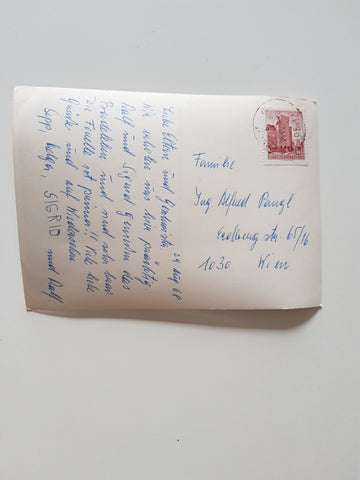 24. Aug 68
Liebe Eltern und
Wir erholen uns hier prächtig.
Ralf und Sigrid genießen das
und sind sehr brav.
Die Forelle ist prima!! Viele liebe
Grüße und auf Wiedersehen
Sepp, Helga, SIGRID und Ralf.
Familie
Ing Alfred
str. 65/16
1030 Wien